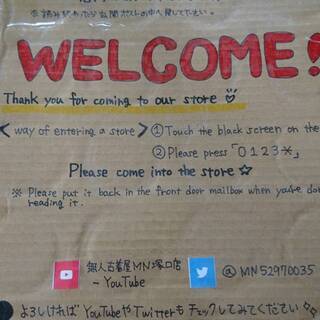 ※読み終わったら玄関ポストの中へ戻して下さい。
WELCOME!
Thank you for coming to our store
< way of entering a store > ①Touch the black screen on the
②Please press「0123*」
Please come into the store☆
※ Please put it back in the front door mailbox when you're done
reading it.
無人古着屋MN塚口店
- YouTube
@MN52970035
よろしければYouTubeやTwitterもチェックしてみてください